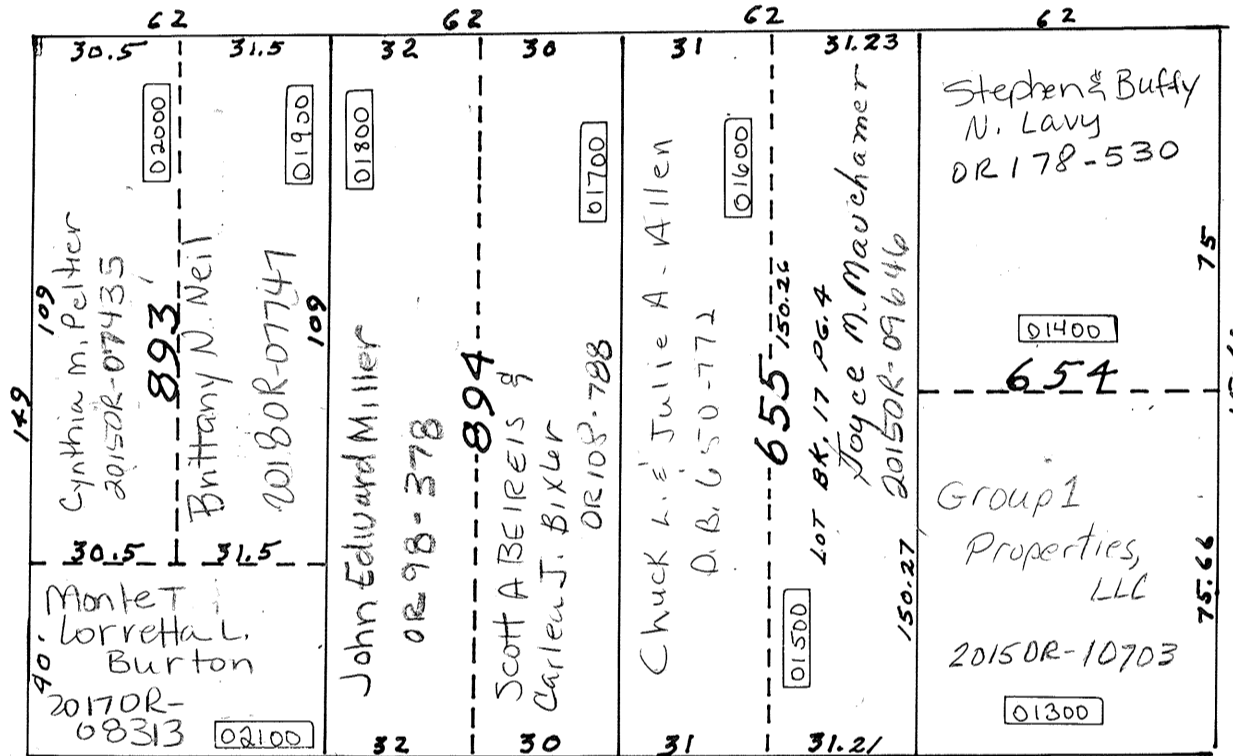 62 62 62 62
30.5 31.5 32 30 31 31.23
02000
01900
109
149
Cynthia M. Peltier
2015OR-07435
893
Brittany N. Neil
2018OR-07747
109
30.5 31.5
Monte T
Lorretta L.
Burton
40
2017OR-
08313
02100
01800
John Edward Miller
OR 98-378
894
01700
Scott A BEIREIS &
Carlen J. Bixler
OR108-788
32 30
01600
Chuck L. & Julie A. Allen
D.B. 650-772
655
150.26
LOT BK. 17 PG. 4
Joyce M. Mauchamer
2015OR-09646
01500
150.27
31 31.21
Stephen & Buffy
N. Lavy
OR 178-530
75
01400
654
Group 1
Properties,
LLC
75.66
2015OR-10703
01300